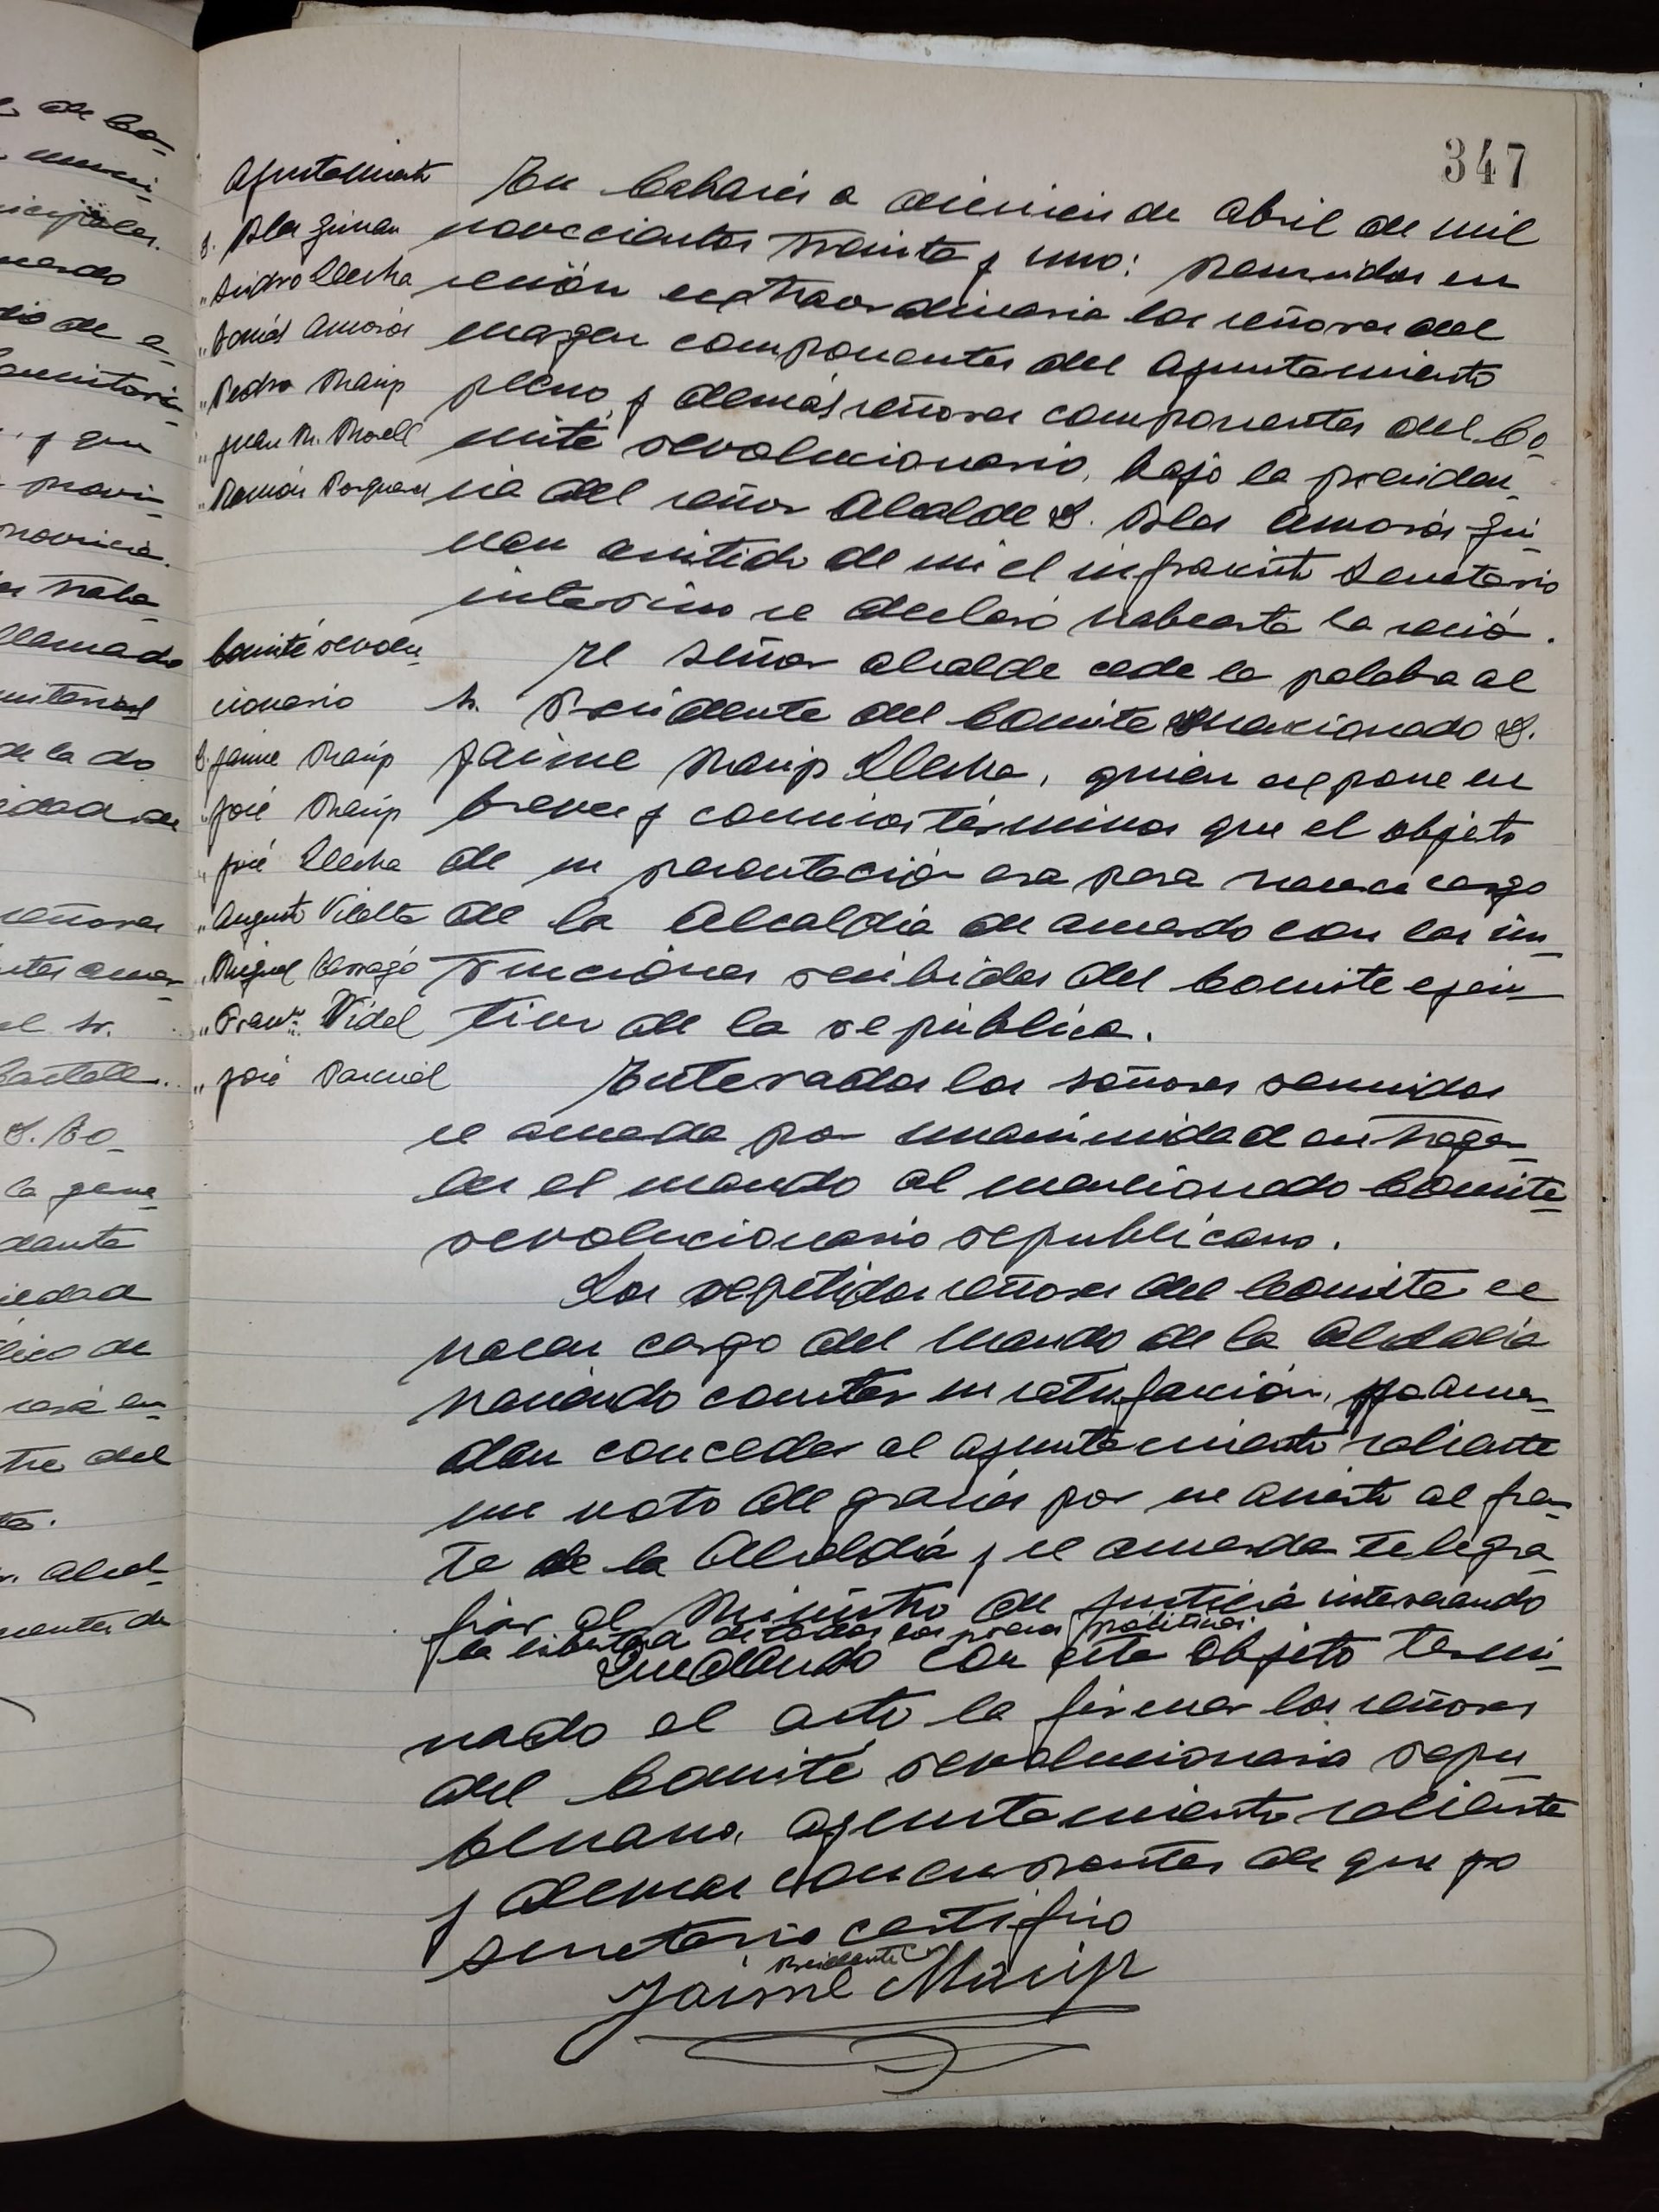 347
Ayuntamiento
D. Blas Guinan
" Isidro Llecha
" Tomás Amorós
" Pedro Macip
" Juan M. Morell
" Ramón
Comité revolu-
cionario
D. Jaime Macip
" José Macip
" José Llecha
" Augusto Vilalta
" Miguel Tarragó
" Franco Vidal
" José Pascual
En Cabacés a dieciseis de Abril de mil
novecientos treinta y uno: Reunidos en
sesión extraordinaria los señores del
margen componentes del Ayuntamiento
pleno y demás señores componentes del Co-
mité revolucionario, bajo la presiden-
cia del señor Alcalde D. Blas Amorós Gui-
nan asistido de mi el infrascrito Secretario
interino se declaró habierta la sesió.
El señor alcalde cede la palabra al
Sr. Presidente del Comite mencionado D.
Jaime Macip Llecha, quien expone en
breves y concisos términos que el objeto
de su presentación era para hacerse cargo
de la Alcaldía de acuerdo con las ins-
trucciones recibidas del Comite ejecu-
tivo de la república.
Enterados los señores reunidos
se acuerda por unanimidad entregar-
les el mando al mencionado Comite
revolucionario republicano.
Los repetidos señores del Comite se
hacen cargo del mando de la Alcaldía
haciendo constar su satisfacción, y acuer-
dan conceder al ayuntamiento saliente
un voto de gracias por su acierto al fren-
te de la Alcaldía y se acuerda telegra-
fiar al Ministro de Justicia interesando
la libertad de todos los presos políticos
Quedando con este objeto termi-
nado el acto, la firman los señores
del Comité revolucionario repu-
blicano, ayuntamiento saliente
y demas concurrentes de que yo
secretario certifico
Presidente
Jaime Macip